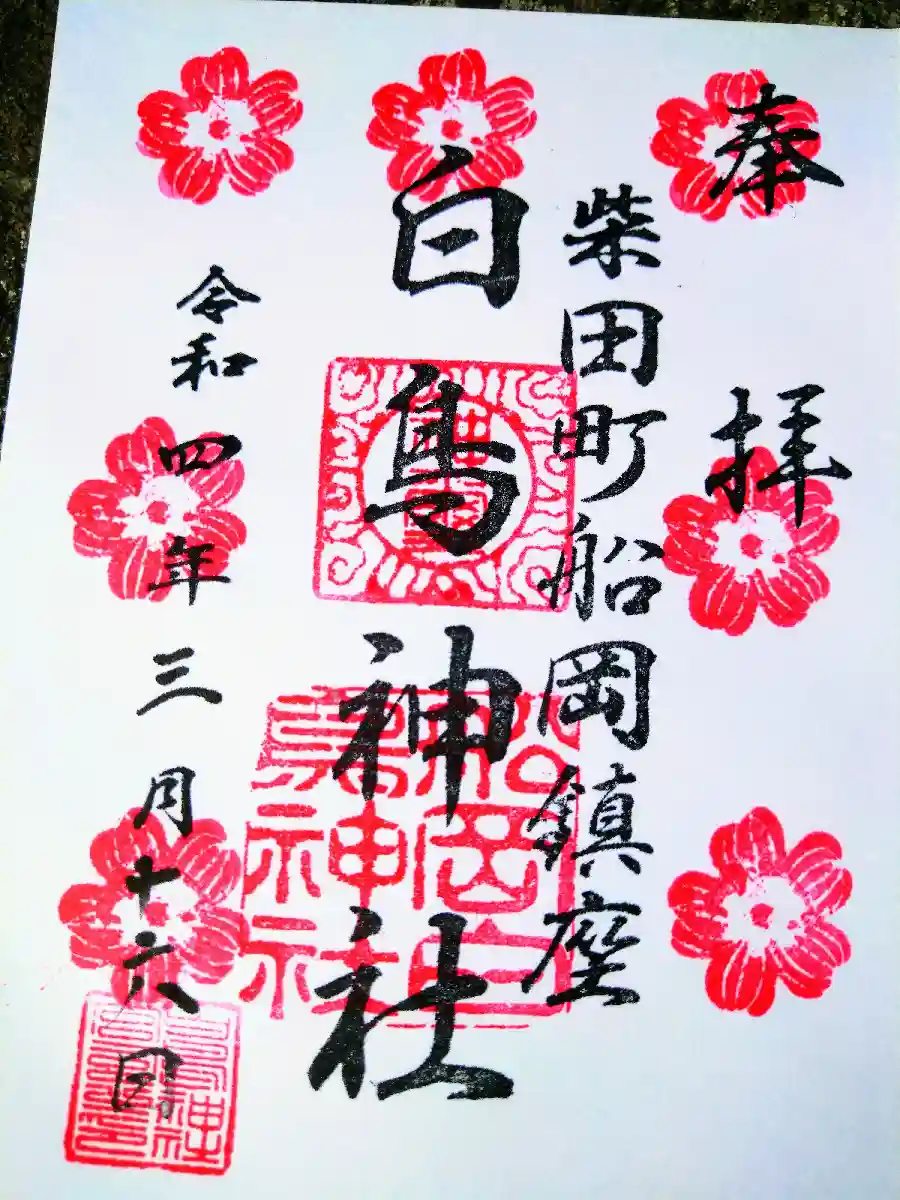 奉拝
柴田町船岡鎮座
白鳥神社
令和四年三月十六日
船岡白
鳥神社